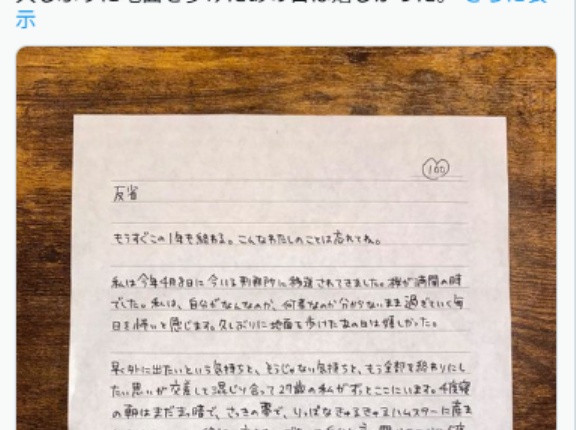 久しぶりに地面を歩けたあの日は嬉しかった。 さらに表
示
100
反省
もうすぐこの1年も終わる。こんなわたしのことは忘れてね。
私は今年4月8日に今いる刑務所に移送されてきました。桜が満開の時
でした。私は、自分がなんなのか、何者なのか分からないまま過ぎていく毎
日を怖いと感じます。久しぶりに地面を歩けたあの日は嬉しかった。
早く外に出たいという気持ちと、そうじゃない気持ちと、もう全部を終わりにし
たい思いが交差して混じり合って27歳の私がずっとここにいます。4度寝
の朝はまだまっ暗で、さっきの夢で、りっぱなきゅるきゅるハムスターに産ま